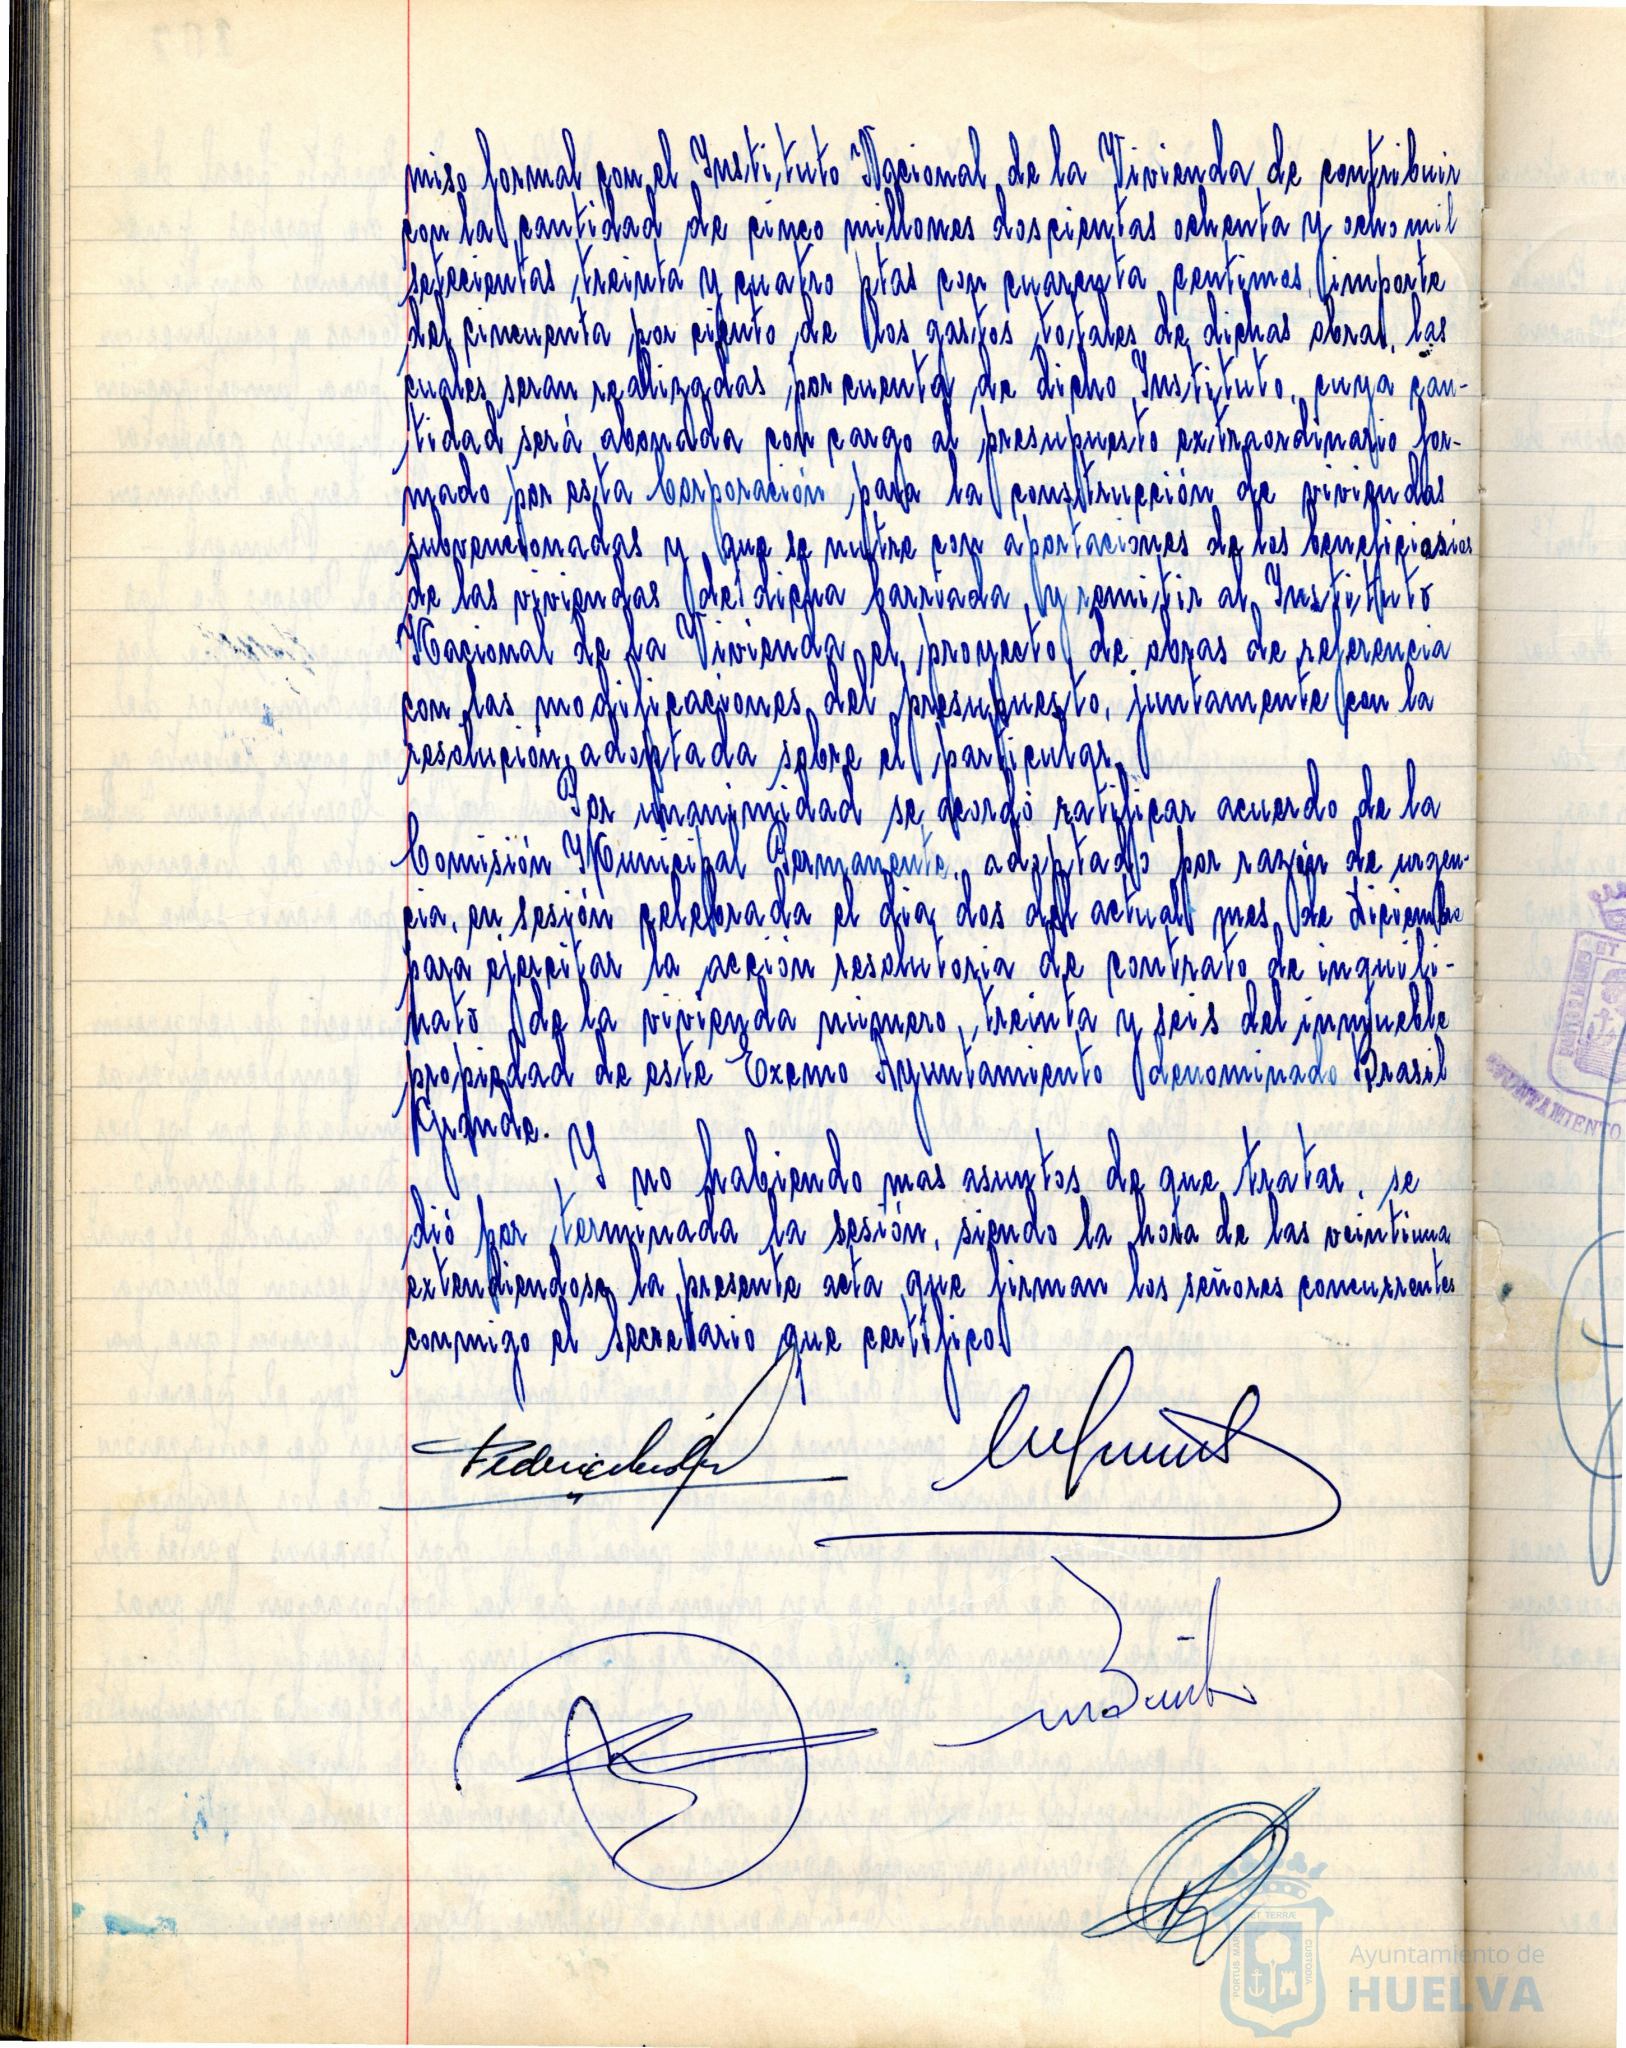 miso formal con el Instituto Nacional de la Vivienda de contribuir
con la cantidad de cinco millones doscientas ochenta y ocho mil
setecientas treinta y cuatro ptas con cuarenta centimos, importe
del cincuenta por ciento de los gastos totales de dichas obras, las
cuales seran realizadas por cuenta de dicho Instituto, cuya can-
tidad será abonada con cargo al presupuesto extraordinario for-
mado por esta Corporación para la construcción de viviendas
subvencionadas y que se nutre con aportaciones de los beneficiarios
de las viviendas de dicha barriada, y remitir al Instituto
Nacional de la Vivienda el proyecto de obras de referencia
con las modificaciones del presupuesto, juntamente con la
resolución adoptada sobre el particular.
Por unanimidad se acordó ratificar acuerdo de la
Comisión Municipal Permanente, adoptado por razón de urgen-
cia, en sesión celebrada el dia dos del actual mes de diciembre
para ejercitar la acción resolutoria de contrato de inquili-
nato de la vivienda número, treinta y seis del inmueble
propiedad de este Excmo Ayuntamiento denominado Brasil
Grande.
Y no habiendo mas asuntos de que tratar, se
dió por terminada la sesión, siendo la hora de las veintiuna
extendiendose la presente acta que firman los señores concurrentes
conmigo el secretario que certifico.
AYUNTAMIENTO
PORTUS MARIS ET TERRÆ CUSTODIA
Ayuntamiento de
HUELVA